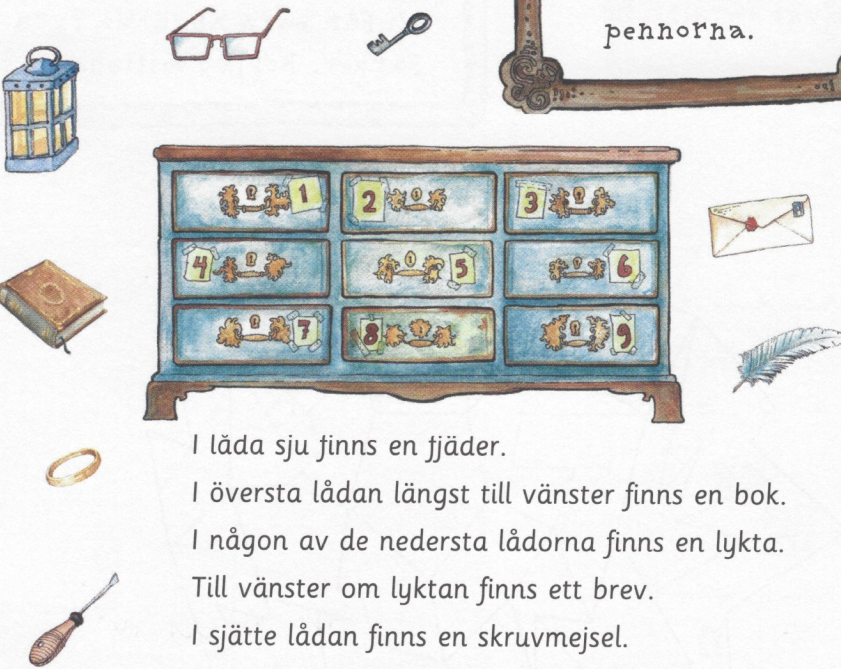 pennorna.
1
2
3
4
5
6
7
8
9
I låda sju finns en fjäder.
I översta lådan längst till vänster finns en bok.
I någon av de nedersta lådorna finns en lykta.
Till vänster om lyktan finns ett brev.
I sjätte lådan finns en skruvmejsel.